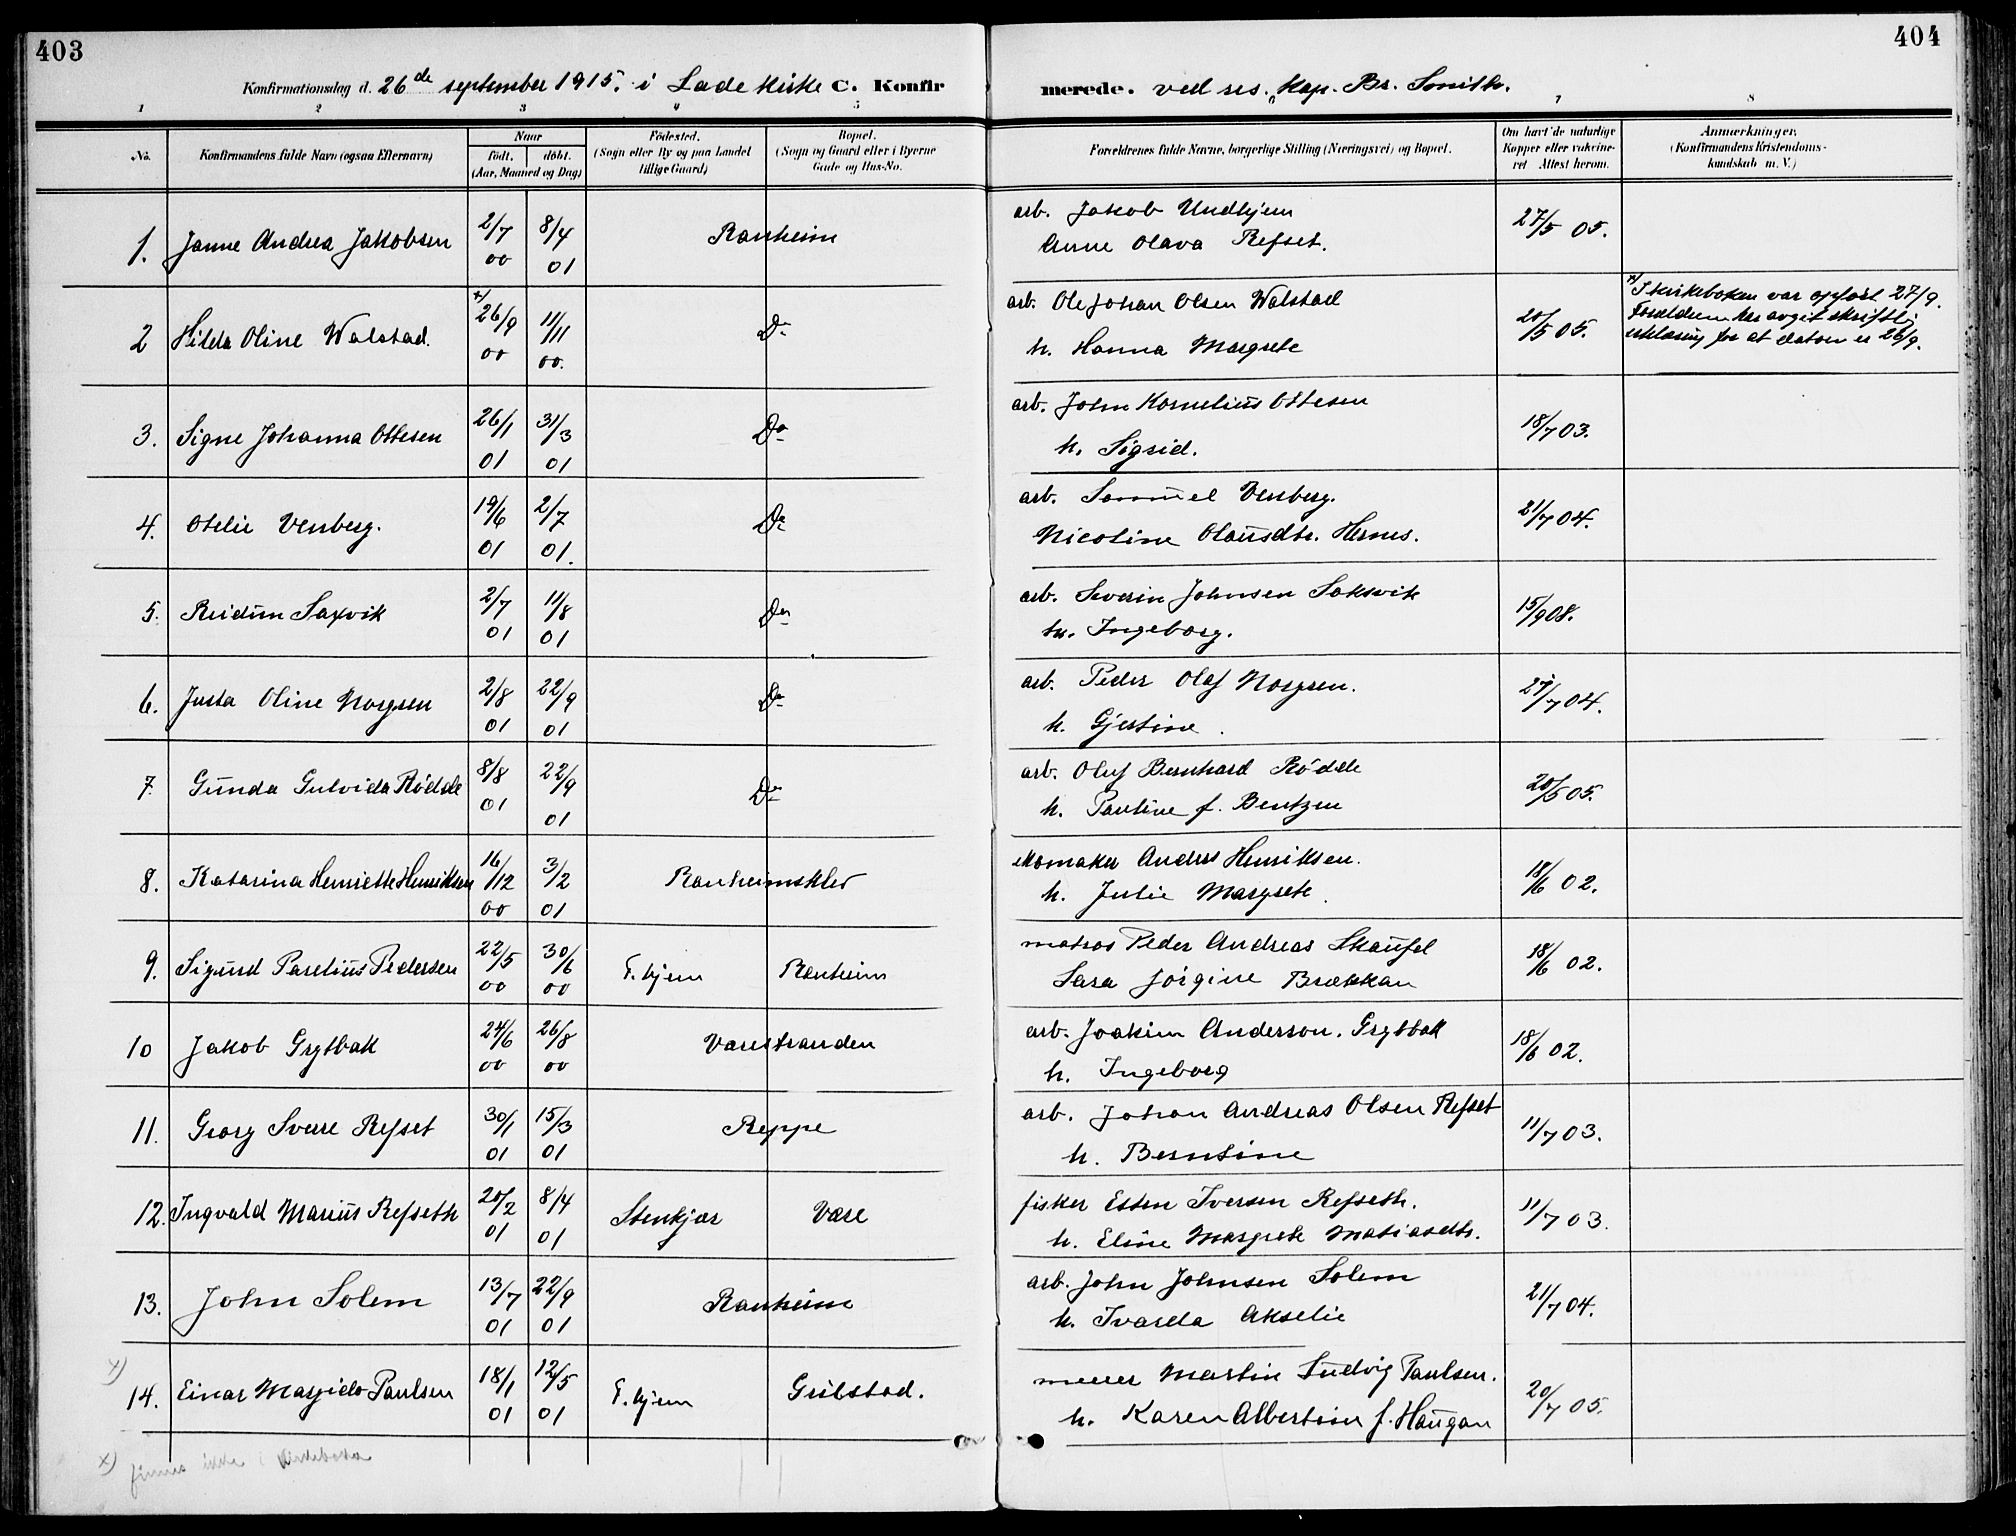 403
404
Konfirmationsdag d. 26de september 1915. i Lade kirke C. Konfirmerede. ved res. kap. Br. Smith.
1 2 3 4 5 7 8
No. Konfirmandens fulde Navn (ogsaa Efternavn) Naar Fødested. Bopæl. Forældrenes fulde Navne, borgerlige Stilling (Næringsvei) og Bopæl. Om havt de naturlige Anmærkninger.
født. døbt. (Sogn eller By og paa Landet (Sogn og Gaard eller i Byerne Kopper eller vakcine- (Konfirmandens Kristendoms-
(Aar, Maaned og Dag) tillige Gaard) Gade og Hus-No. ret Attest herom. kundskab m. V.)
1. Janne Andrea Jakobsen 2/7 00 8/4 01 Ranheim arb. Jakob Undhjem 27/5 05.
Anne Olava Refset.
2 Hilda Oline Walstad. x) 26/9 00 11/11 00. Do arb. Ole Johan Olsen Walstad 20/5 05. x) I kirkeboken var opført 27/9.
h. Hanna Margrete Forældrene har avgit skriftlig
erklæring for at datoen er 26/9.
3. Signe Johanna Ottesen 26/1 01 31/3 01 Do arb. John Kornelius Ottesen 18/7 03.
h. Sigrid.
4. Otelie Venberg. 19/6 01 2/7 01. Do arb. Samuel Venberg. 21/7 04.
Nicoline Olausdtr. Hernes.
5. Reidun Saxvik 2/7 01 11/8 01 Do arb. Severin Johnsen Saksvik 15/9 08.
h. Ingeborg.
6. Justa Oline Norgren 2/8 01 22/9 01 Do arb. Peder Olaf Norgren. 27/7 04.
h. Gjertine.
7. Gunda Gulvida Rødde 8/8 01 22/9 01 Do arb. Oluf Bernhard Rødde 20/5 05.
h. Pauline f. Bentzen
8. Katarina Henriette Henriksen 16/12 00 3/2 01 Ranheimsklev skomaker Andres Henriksen. 18/6 02.
h. Julie Margrete.
9. Sigurd Parelius Pedersen 22/5 00 30/6 00 T.hjem Ranheim matros Peder Andreas Skaufel 18/6 02.
Sara Jørgine Brækkan
10 Jakob Grytbak 24/6 00 26/8 00 Værestranden arb. Joakim Anderson. Grytbak 18/6 02.
h. Ingeborg
11. Georg Sverre Refset 30/1 01 15/3 01 Reppe arb. Johan Andreas Olsen Refset 11/7 03.
h. Berntine
12. Ingvald Marius Refseth 20/2 01 8/4 01 Stenkjær Være fisker Esten Iversen Refseth. 11/7 03.
h. Eline Margrete Matiasdtr.
13. John Solem 13/7 01 22/9 01 Ranheim arb. John Johnsen Solem 21/7 04.
h. Ivarda Akselie
x)
14. Einar Margido Paulsen 18/1 01 12/5 01 T.hjem Grilstad. murer Martin Ludvig Paulsen. 20/7 05.
h. Karen Albertine f. Haugan
x) finnes ikke i kirkeboka